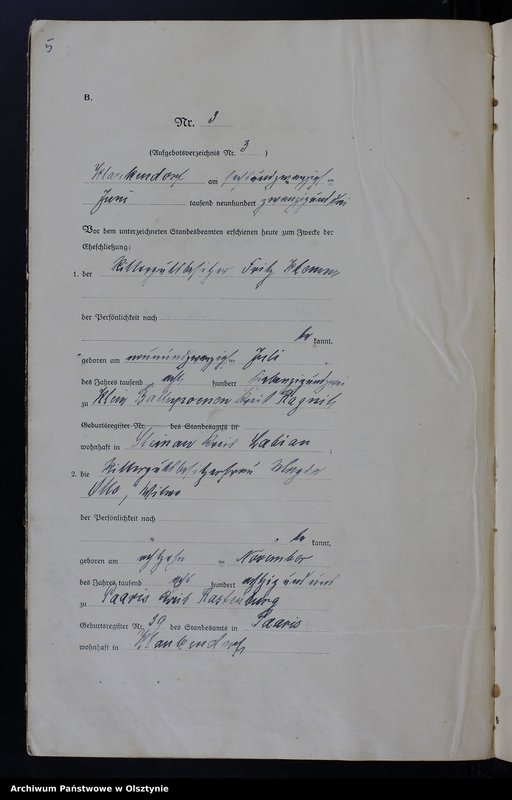 5
B.
Nr. 3
(Aufgebotsverzeichnis Nr. 3 )
Klaukendorf am sechsundzwanzigsten
Juni tausend neunhundert zwanzigunddrei
Vor dem unterzeichneten Standesbeamten erschienen heute zum Zwecke der
Eheschließung:
1. der Rittergutsbesitzer Fritz
der Persönlichkeit nach
be kannt,
geboren am neunundzwanzigsten Juli
des Jahres tausend acht hundert siebenzigundzwei
zu Klein Kreis Ragnit
Geburtsregister Nr. des Standesamts in
wohnhaft in Kreis Labiau ;
2. die Rittergutsbesitzerfrau
Otto, Witwe
der Persönlichkeit nach
be kannt,
geboren am achtzehn ten November
des Jahres tausend acht hundert achtzig und
zu Paaris Kreis Rastenburg
Geburtsregister Nr. 59 des Standesamts in Paaris
wohnhaft in Klaukendorf
Archiwum Państwowe w Olsztynie